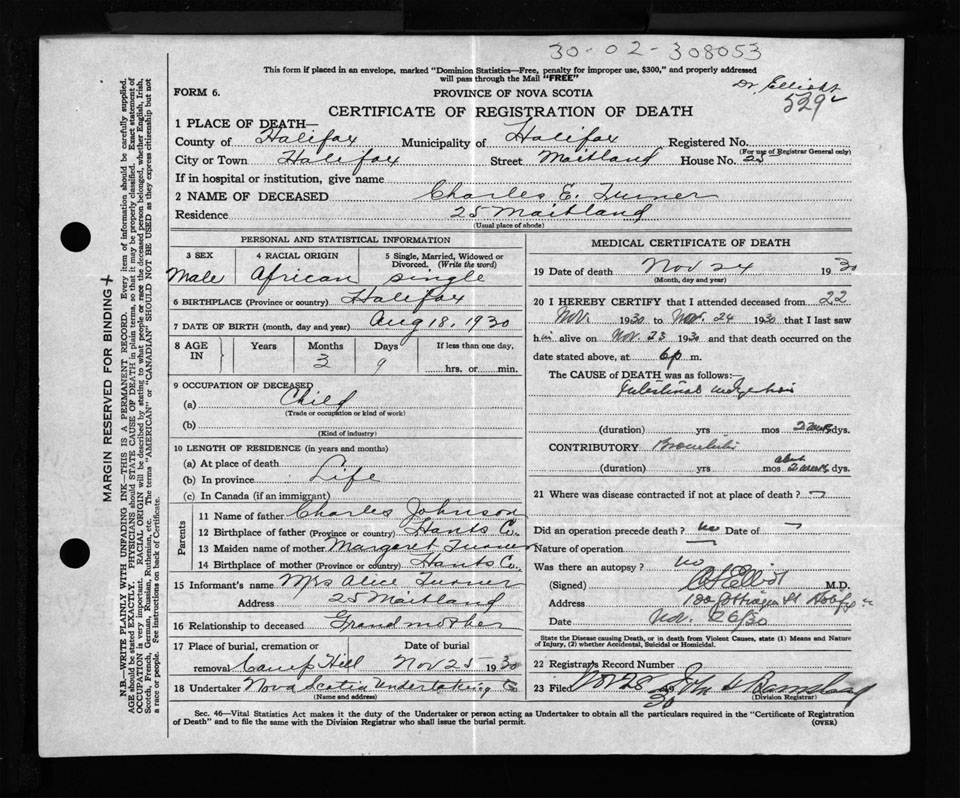 30-02-308053
This form if placed in an envelope, marked "Dominion Statistics—Free, penalty for improper use, $300," and properly addressed
will pass through the Mail "FREE"
Dr. Elliott
529
FORM 6.
PROVINCE OF NOVA SCOTIA
CERTIFICATE OF REGISTRATION OF DEATH
1 PLACE OF DEATH—
County of Halifax Municipality of Halifax Registered No.
(For use of Registrar General only)
City or Town Halifax Street Maitland House No. 25
If in hospital or institution, give name
2 NAME OF DECEASED Charles E. Turner
Residence 25 Maitland
(Usual place of abode)
PERSONAL AND STATISTICAL INFORMATION
3 SEX 4 RACIAL ORIGIN 5 Single, Married, Widowed or Divorced. (Write the word)
Male African single
6 BIRTHPLACE (Province or country) Halifax
7 DATE OF BIRTH (month, day and year) Aug 18, 1930
8 AGE IN Years Months Days If less than one day,
3 9 hrs. or min.
9 OCCUPATION OF DECEASED
(a) Child
(Trade or occupation or kind of work)
(b)
(Kind of industry)
10 LENGTH OF RESIDENCE (in years and months)
(a) At place of death
(b) In province Life
(c) In Canada (if an immigrant)
Parents
11 Name of father Charles Johnson
12 Birthplace of father (Province or country) Hants Co.
13 Maiden name of mother Margaret Turner
14 Birthplace of mother (Province or country) Hants Co.
15 Informant's name Mrs Alice Turner
Address 25 Maitland
16 Relationship to deceased Grandmother
17 Place of burial, cremation or removal Date of burial
Camp Hill Nov 25 1930
18 Undertaker Nova Scotia Undertaking Co
(Name and address)
MEDICAL CERTIFICATE OF DEATH
19 Date of death Nov 24 1930
(Month, day and year)
20 I HEREBY CERTIFY that I attended deceased from 22
Nov 1930 to Nov. 24 1930 that I last saw
him alive on Nov. 23 1930 and that death occurred on the
date stated above, at 6 p m.
The CAUSE of DEATH was as follows:—
Intestinal
(duration) yrs mos dys.
CONTRIBUTORY Bronchitis
(duration) yrs mos about dys.
21 Where was disease contracted if not at place of death? —
Did an operation precede death? no Date of —
Nature of operation —
Was there an autopsy? no
(Signed) Elliot M.D.
Address Gottingen St
Date Nov. 26/30
State the Disease causing Death, or in death from Violent Causes, state (1) Means and Nature
of Injury, (2) whether Accidental, Suicidal or Homicidal.
22 Registrar's Record Number
23 Filed Nov 28 30
(Division Registrar)
Sec. 46—Vital Statistics Act makes it the duty of the Undertaker or person acting as Undertaker to obtain all the particulars required in the "Certificate of Registration
of Death" and to file the same with the Division Registrar who shall issue the burial permit.
(OVER)
MARGIN RESERVED FOR BINDING
N.B.—WRITE PLAINLY WITH UNFADING INK—THIS IS A PERMANENT RECORD. Every item of information should be carefully supplied.
AGE should be stated EXACTLY. PHYSICIANS should STATE CAUSE OF DEATH in plain terms, so that it may be properly classified. Exact statement of
OCCUPATION is very important. RACIAL ORIGIN will be described by stating to what people or race the deceased person belonged, whether English, Irish,
Scotch, French, German, Russian, Ruthenian, etc. The terms "AMERICAN" or "CANADIAN" SHOULD NOT BE USED as they express citizenship but not
a race or people. See instructions on back of Certificate.